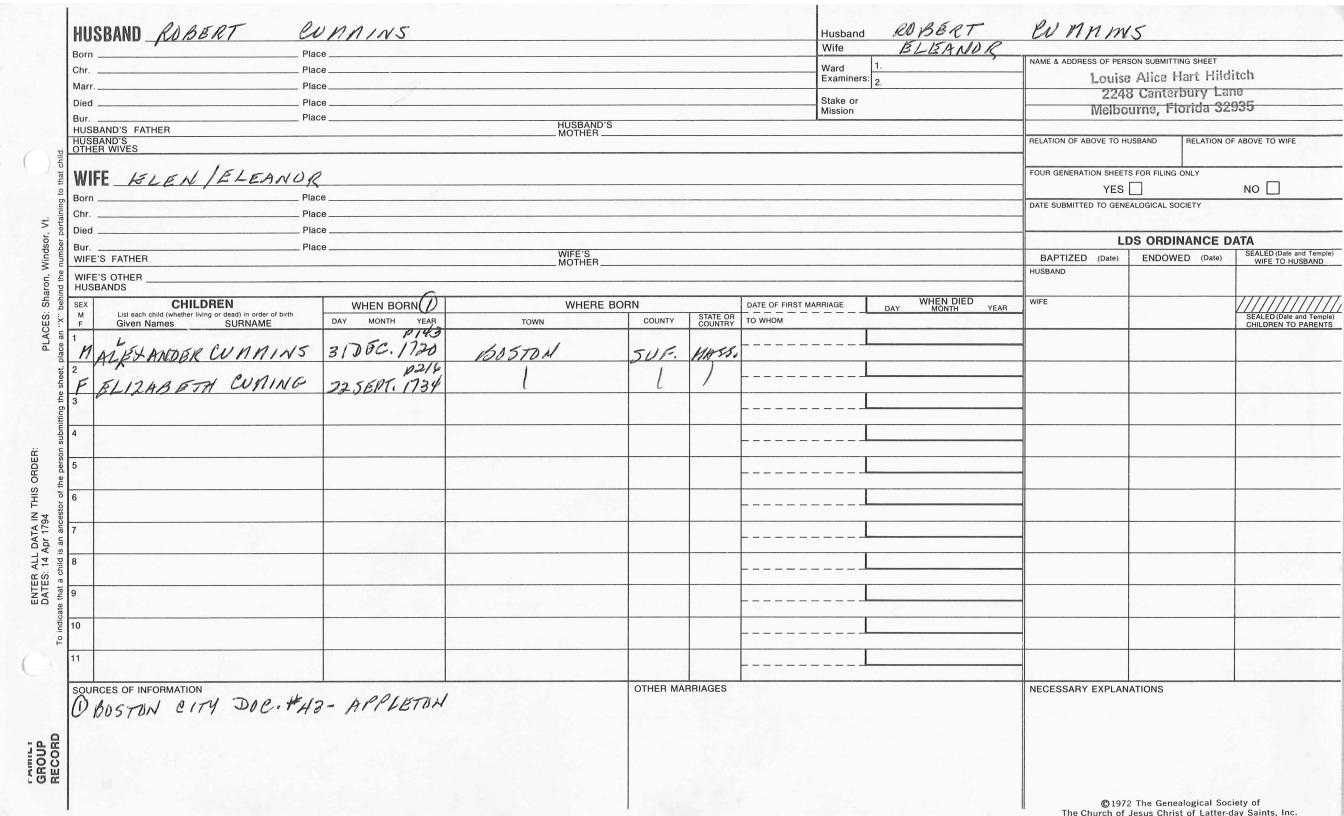 HUSBAND ROBERT CUMMINS
Born Place
Chr. Place
Marr. Place
Died Place
Bur. Place
HUSBAND'S FATHER HUSBAND'S MOTHER
HUSBAND'S OTHER WIVES
WIFE ELEN/ELEANOR
Born Place
Chr. Place
Died Place
Bur. Place
WIFE'S FATHER WIFE'S MOTHER
WIFE'S OTHER HUSBANDS
Husband ROBERT CUMMINS
Wife ELEANOR
Ward Examiners: 1.
2.
Stake or Mission
NAME & ADDRESS OF PERSON SUBMITTING SHEET
Louise Alice Hart Hilditch
2248 Canterbury Lane
Melbourne, Florida 32935
RELATION OF ABOVE TO HUSBAND RELATION OF ABOVE TO WIFE
FOUR GENERATION SHEETS FOR FILING ONLY
YES NO
DATE SUBMITTED TO GENEALOGICAL SOCIETY
LDS ORDINANCE DATA
BAPTIZED (Date) ENDOWED (Date) SEALED (Date and Temple) WIFE TO HUSBAND
HUSBAND
WIFE
SEALED (Date and Temple) CHILDREN TO PARENTS
SEX M F
CHILDREN
List each child (whether living or dead) in order of birth
Given Names SURNAME
WHEN BORN ①
DAY MONTH YEAR
WHERE BORN
TOWN COUNTY STATE OR COUNTRY
DATE OF FIRST MARRIAGE
TO WHOM
WHEN DIED
DAY MONTH YEAR
1 p143
M ALEXANDER CUMMINS 31 DEC. 1720 BOSTON SUF. MASS.
2 p216
F ELIZABETH CUMING 22 SEPT. 1734
3
4
5
6
7
8
9
10
11
SOURCES OF INFORMATION
① BOSTON CITY DOC. #43- APPLETON
OTHER MARRIAGES
NECESSARY EXPLANATIONS
©1972 The Genealogical Society of
The Church of Jesus Christ of Latter-day Saints, Inc.
PLACES: Sharon, Windsor, Vt.
ENTER ALL DATA IN THIS ORDER:
DATES: 14 Apr 1794
To indicate that a child is an ancestor of the person submitting the sheet, place an "X" behind the number pertaining to that child.
FAMILY
GROUP
RECORD